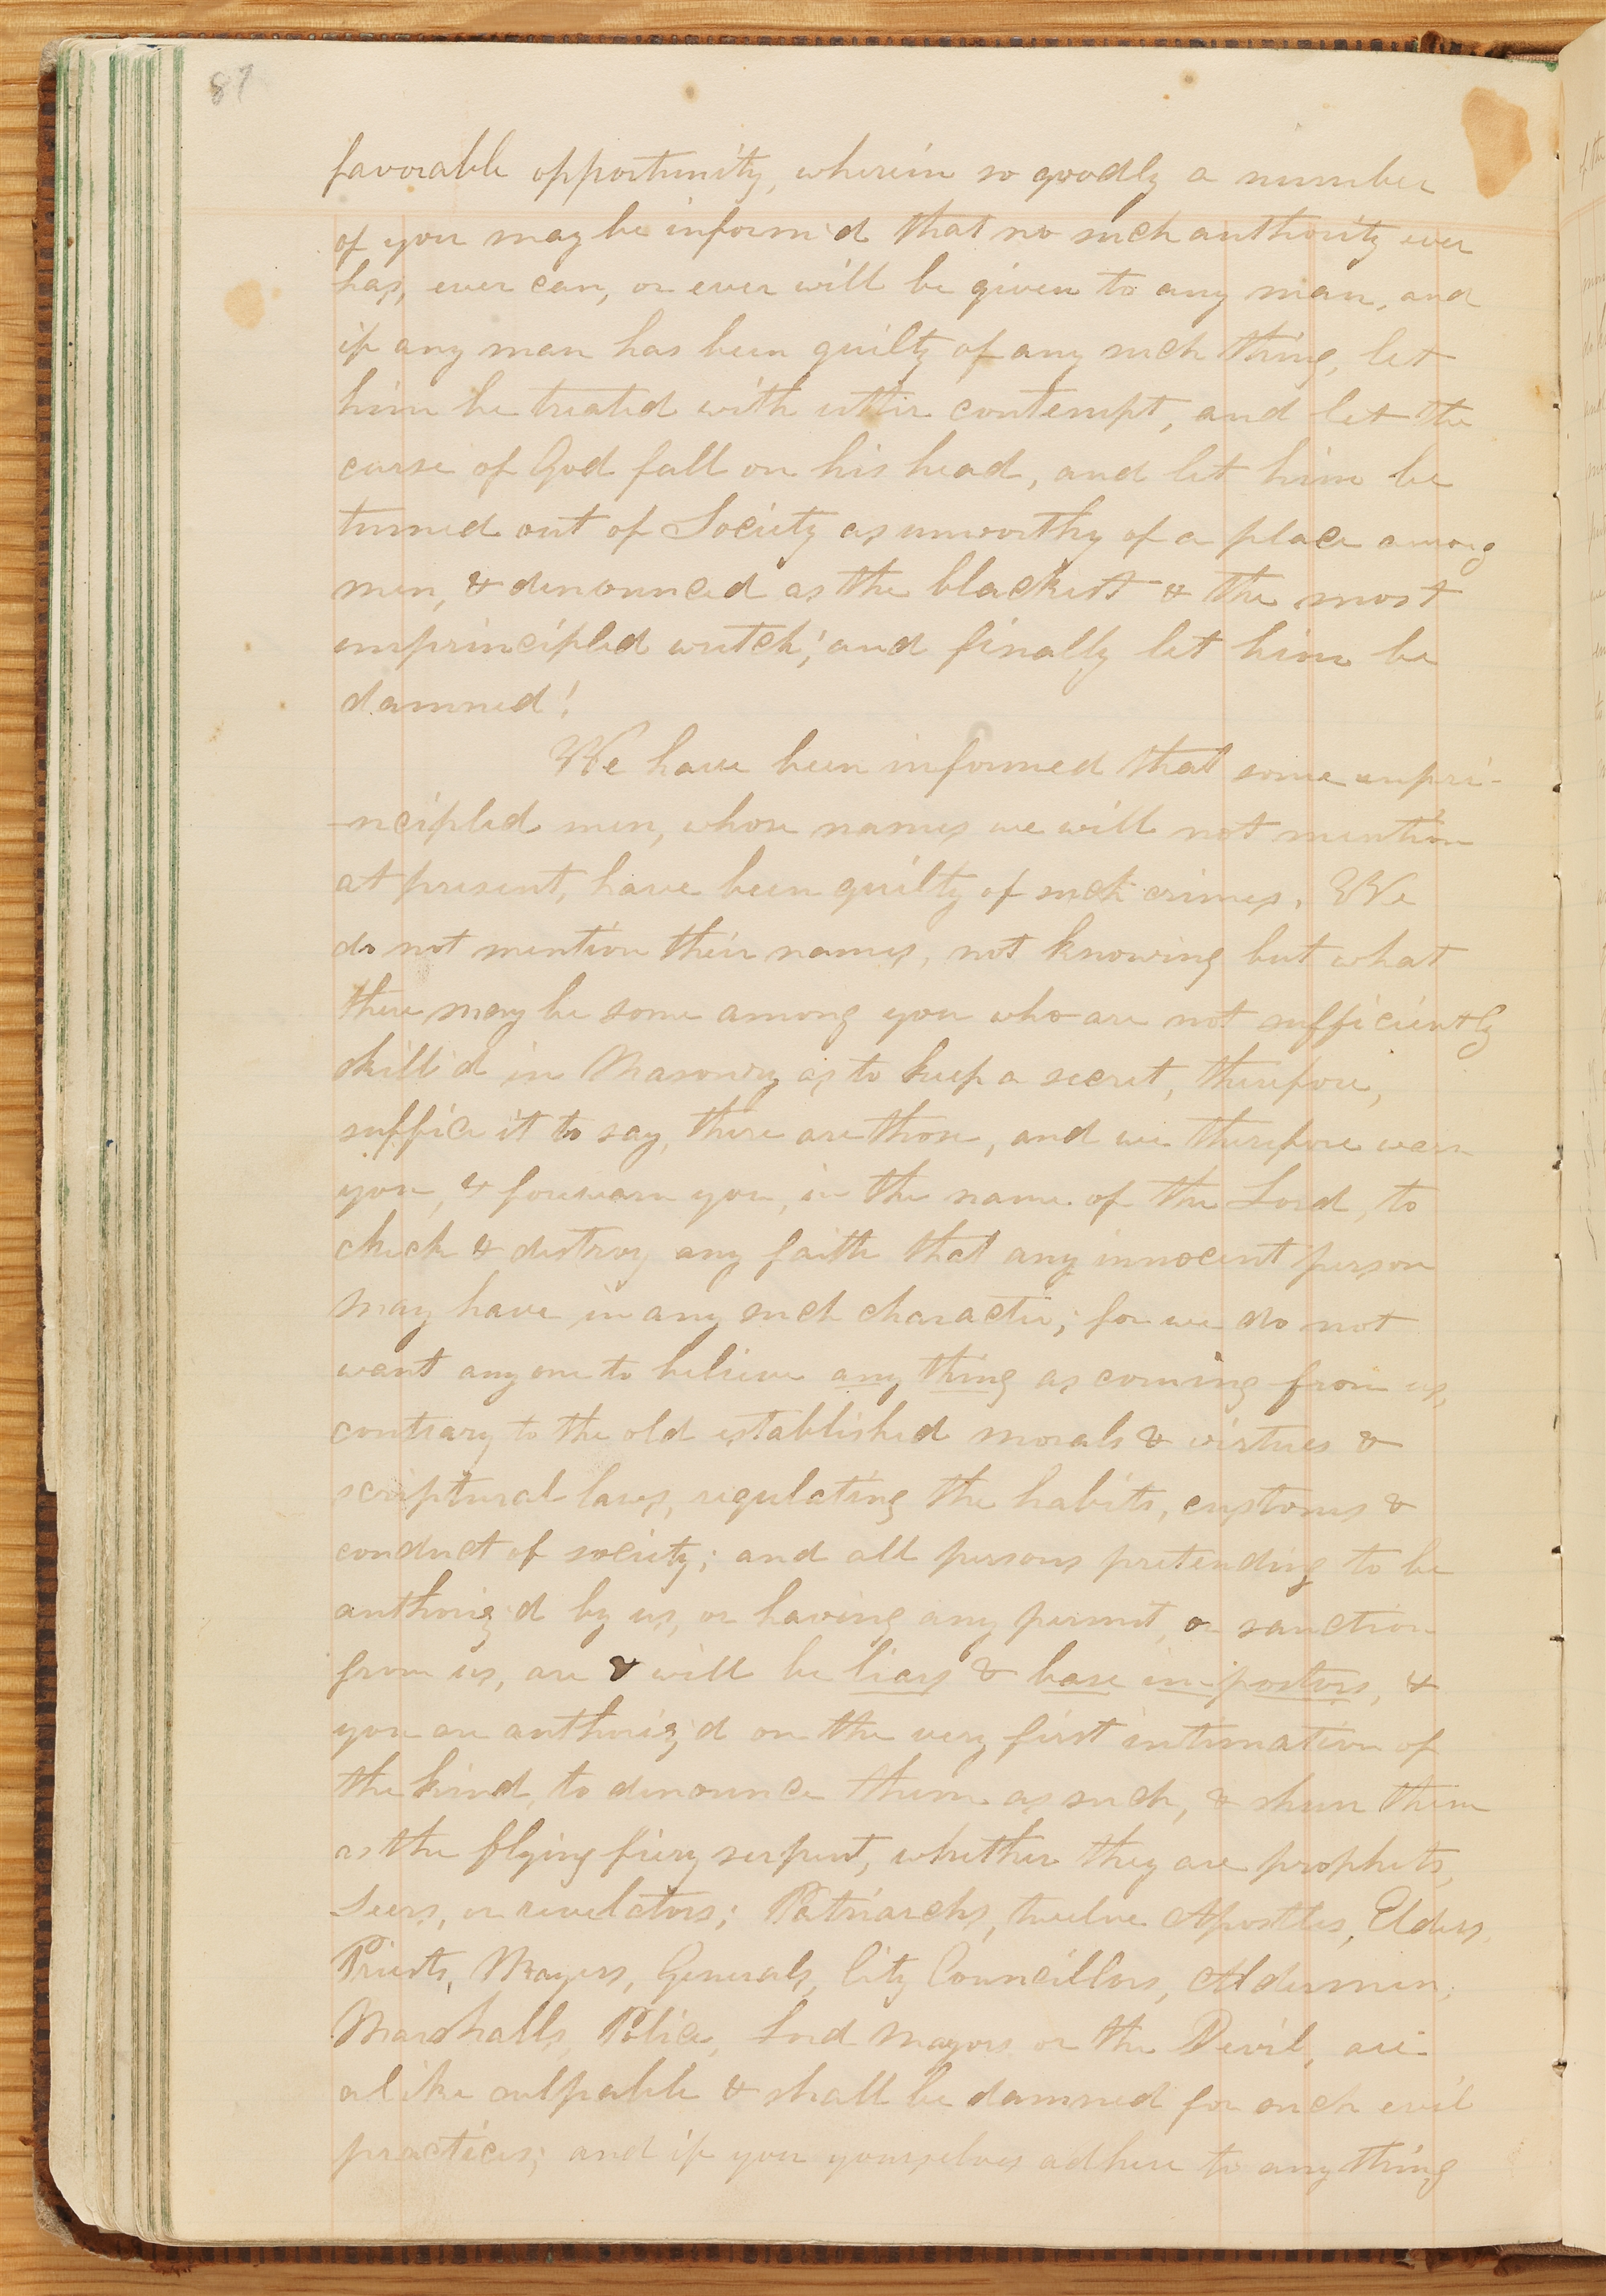 87
favorable opportunity, wherein so goodly a number
of you may be inform'd that no such authority ever
has, ever can, or ever will be given to any man, and
if any man has been guilty of any such thing, let
him be treated with utter contempt, and let the
curse of God fall on his head, and let him be
turned out of Society as unworthy of a place among
men, & denounced as the blackest & the most
unprincipled wretch; and finally let him be
damned!
We have been informed that some unpri-
-ncipled men, whose names we will not mention
at present, have been guilty of such crimes. We
do not mention their names, not knowing but what
there may be some among you who are not sufficiently
skill'd in Masonry as to keep a secret, therefore,
suffice it to say, there are those, and we therefore warn
you, & forewarn you, in the name of the Lord, to
check & destroy any faith that any innocent person
may have in any such character; for we do not
want any one to believe any thing as coming from us,
contrary to the old established morals & virtues &
scriptural laws, regulating the habits, customs &
conduct of society; and all persons pretending to be
authoriz'd by us, or having any permit, or sanction
from us, are & will be liars & base impostors, &
you are authoriz'd on the very first intimation of
the kind, to denounce them as such, & shun them
as the flying fiery serpent, whether they are prophets,
Seers, or revelators; Patriarchs, twelve Apostles, Elders,
Priests, Mayors, Generals, City Councillors, Aldermen,
Marshalls, Police, Lord Mayors or the Devil, are
alike culpable & shall be damned for such evil
practices; and if you yourselves adhere to anything